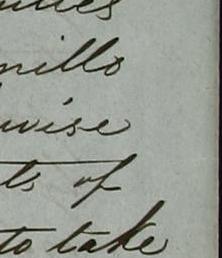 nills
wise
ts of
to take